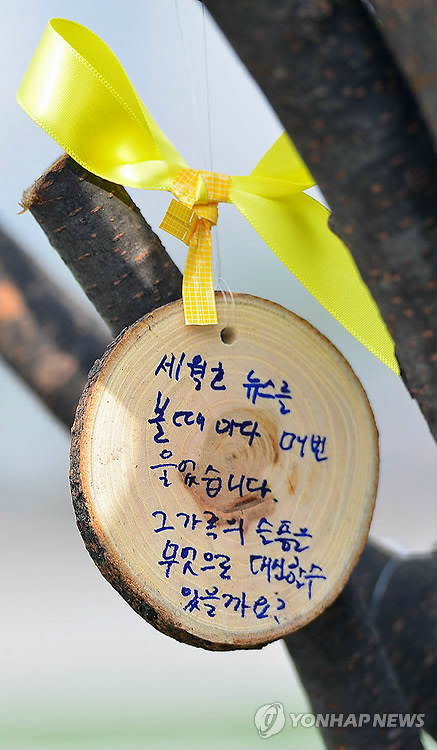 세월호 뉴스를
볼때 마다 매번
울었습니다.
그가족의 슬픔을
무엇으로 대신할수
있을까요?
YONHAP NEWS